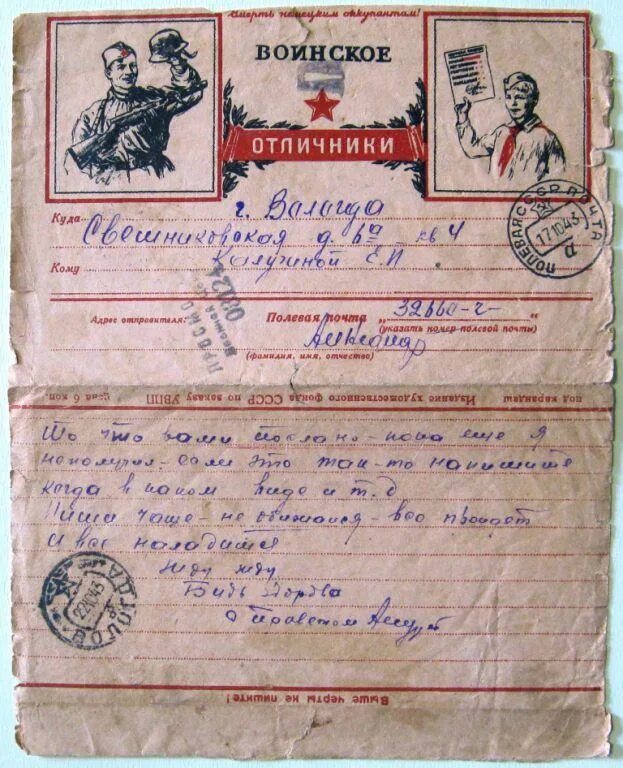 Смерть немецким оккупантам!
ВОИНСКОЕ
ОТЛИЧНИКИ
Куда г. Вологда
Свешниковская д 6а кв 4
Кому Калугиной Е.П
ПОЛЕВАЯ ПОЧТА СССР
17 10 43
ПРОСМО
Военной
Адрес отправителя:
Полевая почта „32660-ч-“
(указать номер полевой почты)
Александр
(фамилия, имя, отчество)
под карандаш Издание художественного фонда СССР по заказу УВПП цена 6 коп.
что вами послано - пока еще я
неполучил. если это так-то напишите
когда в каком виде и т.д
Пиши чаще - не обижайся - все пройдет
и все наладится
Жду жду
Будь здорова
с приветом
ВОЛОГДА
22 10 43
Выше черты не пишите!